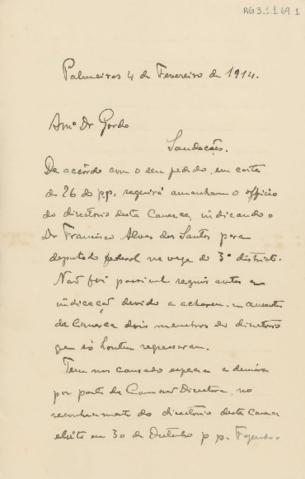 AG3.1.1 69 1
Palmeiras 4 de Fevereiro de 1914.
Amº Dr Gordo
Saudação.
De accôrdo com o seu pedido, em carta
de 26 do pp, seguirá amanham o officio
do directorio desta Comarca, indicando o
Dr Francisco Alves dos Santos para
deputado federal na vaga do 3º districto.
Não foi possivel seguir antes a
indicação devido a acharem-se ausentes
da Comarca dois membros do directorio
que só hontem regressaram.
Tem nos causado a demora
por parte da Commissão Directora, no
reconhecimento do directorio desta Comarca
eleito em 30 de Outubro p p.